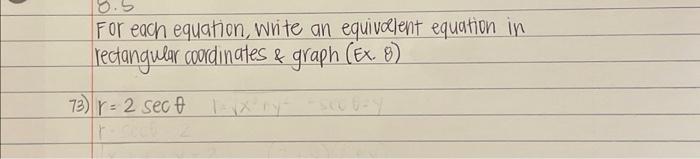 8.5
For each equation, write an equivalent equation in
rectangular coordinates & graph (Ex. 8)
73) r = 2 sec θ